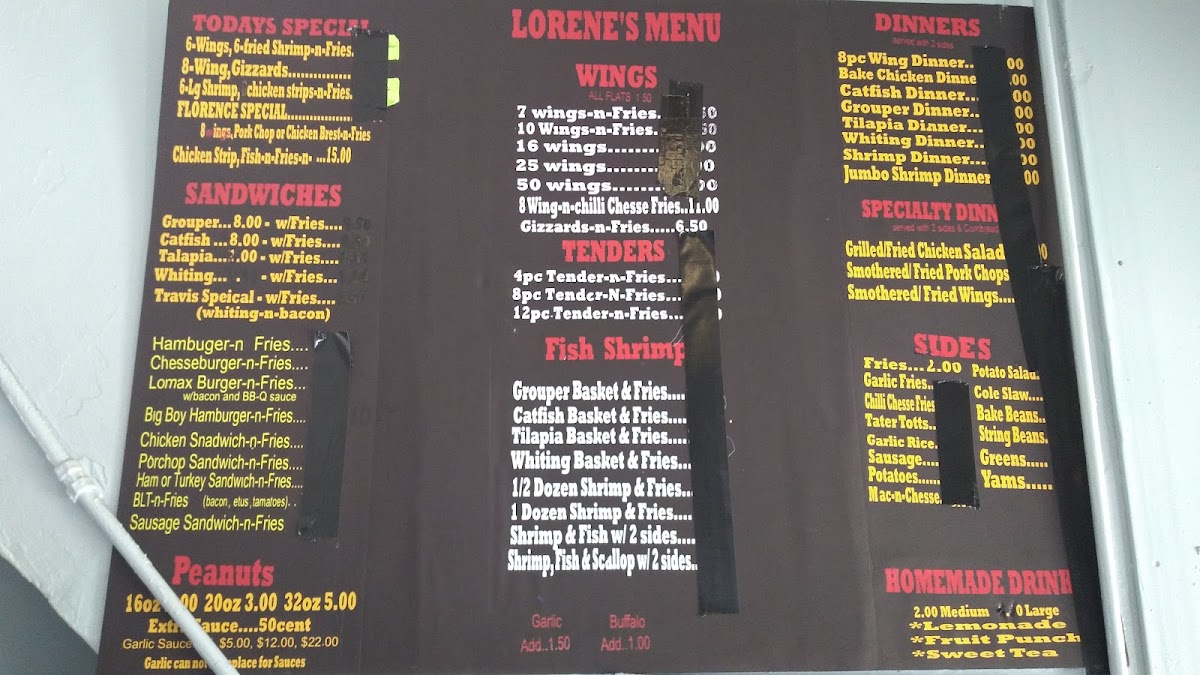 LORENE'S MENU
TODAYS SPECIAL
6-Wings, 6-fried Shrimp-n-Fries.
8-Wing, Gizzards...............
6-Lg Shrimp, chicken strips-n-Fries.
FLORENCE SPECIAL.................
8 ings, Pork Chop or Chicken Brest-n-Fries
Chicken Strip, Fish-n-Fries-n- ...15.00
SANDWICHES
Grouper...8.00 - w/Fries....
Catfish ...8.00 - w/Fries....
Talapia... .00 - w/Fries....
Whiting... . - w/Fries...
Travis Speical - w/Fries....
(whiting-n-bacon)
Hambuger-n Fries....
Chesseburger-n-Fries....
Lomax Burger-n-Fries...
w/bacon and BB-Q sauce
Big Boy Hamburger-n-Fries....
Chicken Snadwich-n-Fries....
Porchop Sandwich-n-Fries....
Ham or Turkey Sandwich-n-Fries....
BLT-n-Fries (bacon, etus ,tamatoes). .
Sausage Sandwich-n-Fries
Peanuts
16oz .00 20oz 3.00 32oz 5.00
Extra Sauce....50cent
Garlic Sauce $5.00, $12.00, $22.00
Garlic can not place for Sauces
WINGS
ALL FLATS 1.50
7 wings-n-Fries. 50
10 Wings-n-Fries. 50
16 wings........ 00
25 wings........ 00
50 wings........ 00
8 Wing-n-chilli Chesse Fries..11.00
Gizzards-n-Fries.....6.50
TENDERS
4pc Tender-n-Fries....
8pc Tender-N-Fries...
12pc Tender-n-Fries....
Fish Shrimp
Grouper Basket & Fries....
Catfish Basket & Fries....
Tilapia Basket & Fries....
Whiting Basket & Fries...
1/2 Dozen Shrimp & Fries...
1 Dozen Shrimp & Fries....
Shrimp & Fish w/ 2 sides....
Shrimp, Fish & Scallop w/ 2 sides..
Garlic Buffalo
Add..1.50 Add..1.00
DINNERS
served with 2 sides
8pc Wing Dinner.. 00
Bake Chicken Dinne .00
Catfish Dinner... 00
Grouper Dinner.. 00
Tilapia Dinner... 00
Whiting Dinner.. 00
Shrimp Dinner... 00
Jumbo Shrimp Dinner 00
SPECIALTY DINN
served with 2 sides & Cornbread
Grilled/Fried Chicken Salad
Smothered/ Fried Pork Chops
Smothered/ Fried Wings....
SIDES
Fries...2.00
Garlic Fries..
Chilli Chesse Fries
Tater Totts..
Garlic Rice.
Sausage....
Potatoes......
Mac-n-Chesse.
Potato Salad.
Cole Slaw....
Bake Beans..
String Beans.
Greens.....
Yams.....
HOMEMADE DRINK
2.00 Medium 0 Large
*Lemonade
*Fruit Punch
*Sweet Tea